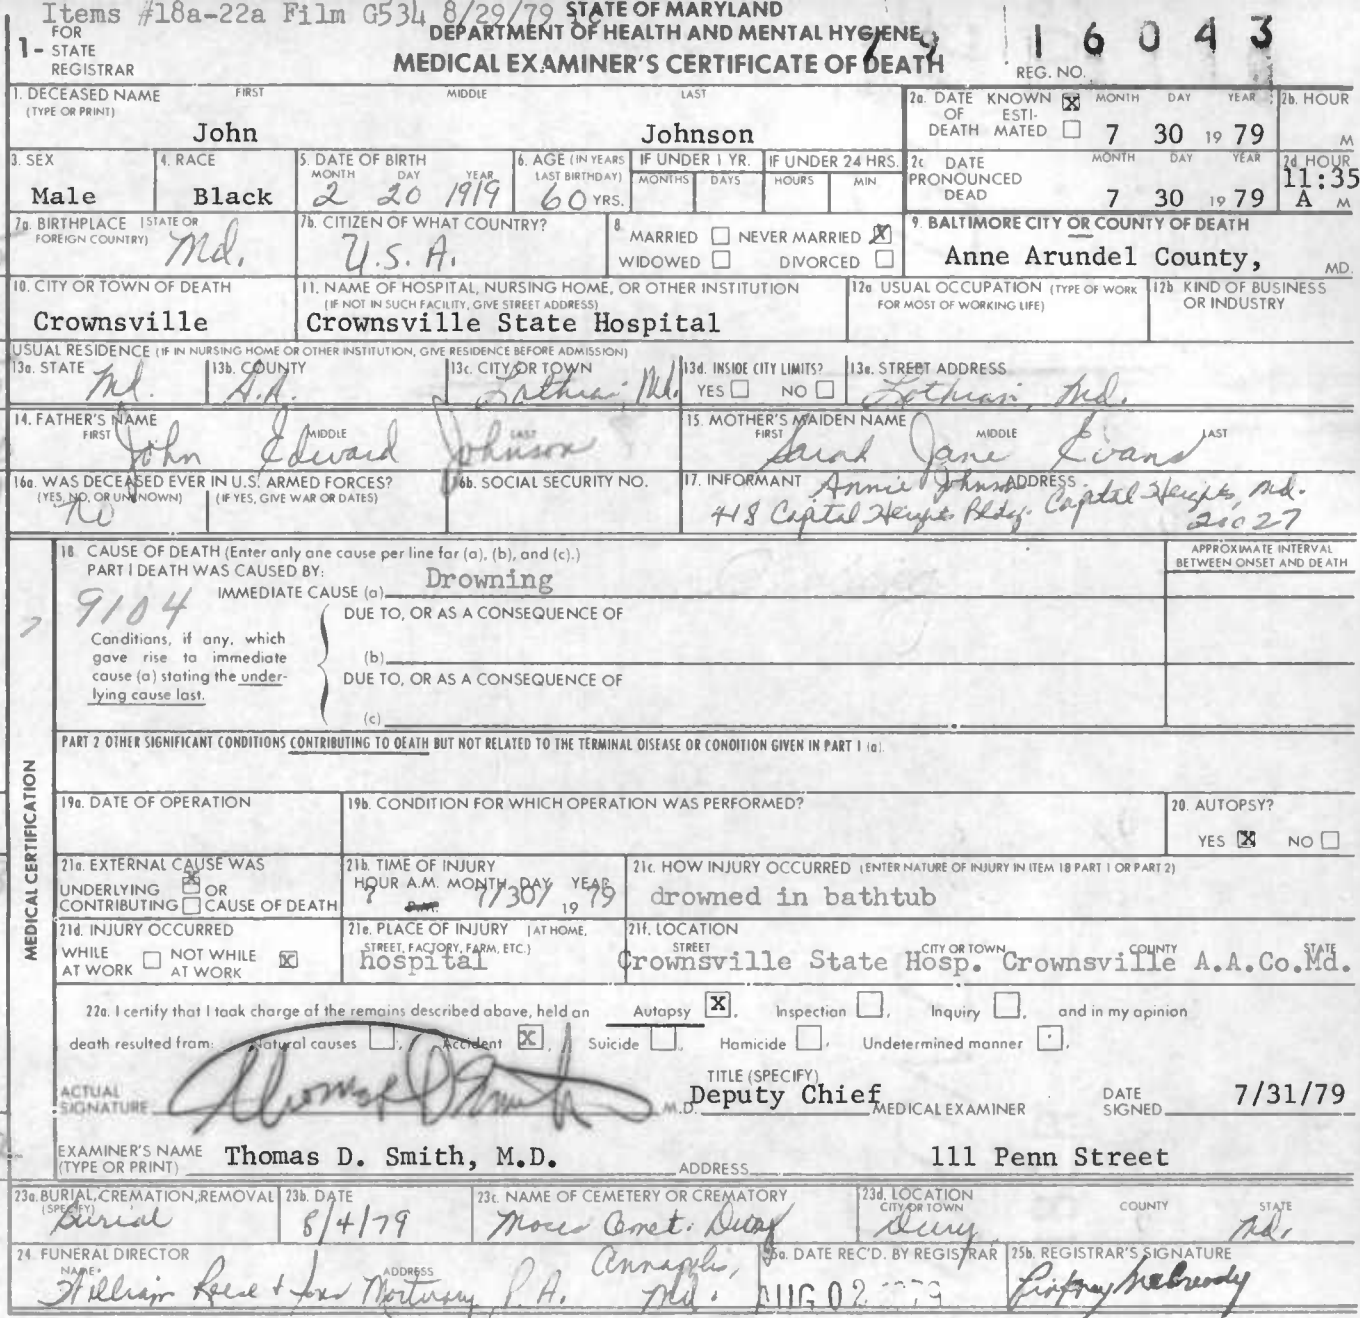 Items #18a-22a Film G534 8/29/79
STATE OF MARYLAND
DEPARTMENT OF HEALTH AND MENTAL HYGIENE
MEDICAL EXAMINER'S CERTIFICATE OF DEATH
1- FOR STATE REGISTRAR
79 16043
REG. NO.
1. DECEASED NAME (TYPE OR PRINT) FIRST MIDDLE LAST
John Johnson
2a. DATE OF DEATH KNOWN X ESTIMATED MONTH DAY YEAR 2b. HOUR
7 30 19 79 M
3. SEX 4. RACE 5. DATE OF BIRTH MONTH DAY YEAR 6. AGE (IN YEARS LAST BIRTHDAY) IF UNDER 1 YR. MONTHS DAYS IF UNDER 24 HRS. HOURS MIN
Male Black 2 20 1919 60 YRS.
2c DATE PRONOUNCED DEAD MONTH DAY YEAR 2d HOUR
7 30 19 79 11:35 A M
7a. BIRTHPLACE (STATE OR FOREIGN COUNTRY) Md.
7b. CITIZEN OF WHAT COUNTRY? U.S.A.
8. MARRIED NEVER MARRIED X
WIDOWED DIVORCED
9. BALTIMORE CITY OR COUNTY OF DEATH
Anne Arundel County, MD.
10. CITY OR TOWN OF DEATH
Crownsville
11. NAME OF HOSPITAL, NURSING HOME, OR OTHER INSTITUTION
(IF NOT IN SUCH FACILITY, GIVE STREET ADDRESS)
Crownsville State Hospital
12a USUAL OCCUPATION (TYPE OF WORK FOR MOST OF WORKING LIFE)
12b KIND OF BUSINESS OR INDUSTRY
USUAL RESIDENCE (IF IN NURSING HOME OR OTHER INSTITUTION, GIVE RESIDENCE BEFORE ADMISSION)
13a. STATE 13b. COUNTY 13c. CITY OR TOWN 13d. INSIDE CITY LIMITS? 13e. STREET ADDRESS
Md. A.A. Lothian, Md. YES NO Lothian, Md.
14. FATHER'S NAME FIRST MIDDLE LAST
John Edward Johnson
15. MOTHER'S MAIDEN NAME FIRST MIDDLE LAST
Sarah Jane Evans
16a. WAS DECEASED EVER IN U.S. ARMED FORCES?
(YES, NO, OR UNKNOWN) (IF YES, GIVE WAR OR DATES)
No
16b. SOCIAL SECURITY NO.
17. INFORMANT ADDRESS
Annie Johnson Capital Heights, Md.
418 Capital Heights 20027
18 CAUSE OF DEATH (Enter only one cause per line for (a), (b), and (c).)
PART I DEATH WAS CAUSED BY:
IMMEDIATE CAUSE (a) Drowning
APPROXIMATE INTERVAL BETWEEN ONSET AND DEATH
9104
DUE TO, OR AS A CONSEQUENCE OF
Conditions, if any, which gave rise to immediate cause (a) stating the underlying cause last.
(b)
DUE TO, OR AS A CONSEQUENCE OF
(c)
PART 2 OTHER SIGNIFICANT CONDITIONS CONTRIBUTING TO DEATH BUT NOT RELATED TO THE TERMINAL DISEASE OR CONDITION GIVEN IN PART 1 (a).
MEDICAL CERTIFICATION
19a. DATE OF OPERATION
19b. CONDITION FOR WHICH OPERATION WAS PERFORMED?
20. AUTOPSY?
YES X NO
21a. EXTERNAL CAUSE WAS
UNDERLYING X OR
CONTRIBUTING CAUSE OF DEATH
21b. TIME OF INJURY
HOUR A.M. MONTH DAY YEAR
? P.M. 7/30/ 19 79
21c. HOW INJURY OCCURRED (ENTER NATURE OF INJURY IN ITEM 18 PART 1 OR PART 2)
drowned in bathtub
21d. INJURY OCCURRED
WHILE AT WORK NOT WHILE AT WORK X
21e. PLACE OF INJURY (AT HOME, STREET, FACTORY, FARM, ETC.)
hospital
21f. LOCATION STREET CITY OR TOWN COUNTY STATE
Crownsville State Hosp. Crownsville A.A.Co.Md.
22a. I certify that I took charge of the remains described above, held an Autopsy X, Inspection, Inquiry, and in my opinion
death resulted from: Natural causes, Accident X, Suicide, Homicide, Undetermined manner.
ACTUAL SIGNATURE Thomas D Smith M.D.
TITLE (SPECIFY) Deputy Chief MEDICAL EXAMINER
DATE SIGNED 7/31/79
EXAMINER'S NAME (TYPE OR PRINT) Thomas D. Smith, M.D. ADDRESS 111 Penn Street
23a. BURIAL, CREMATION, REMOVAL (SPECIFY) 23b. DATE 23c. NAME OF CEMETERY OR CREMATORY 23d. LOCATION CITY OR TOWN COUNTY STATE
Burial 8/4/79 Moses Cemet. Drury Drury Md.
24. FUNERAL DIRECTOR NAME ADDRESS
William Reese & Sons Mortuary P.A. Annapolis, Md.
25a. DATE REC'D. BY REGISTRAR
AUG 02 1979
25b. REGISTRAR'S SIGNATURE